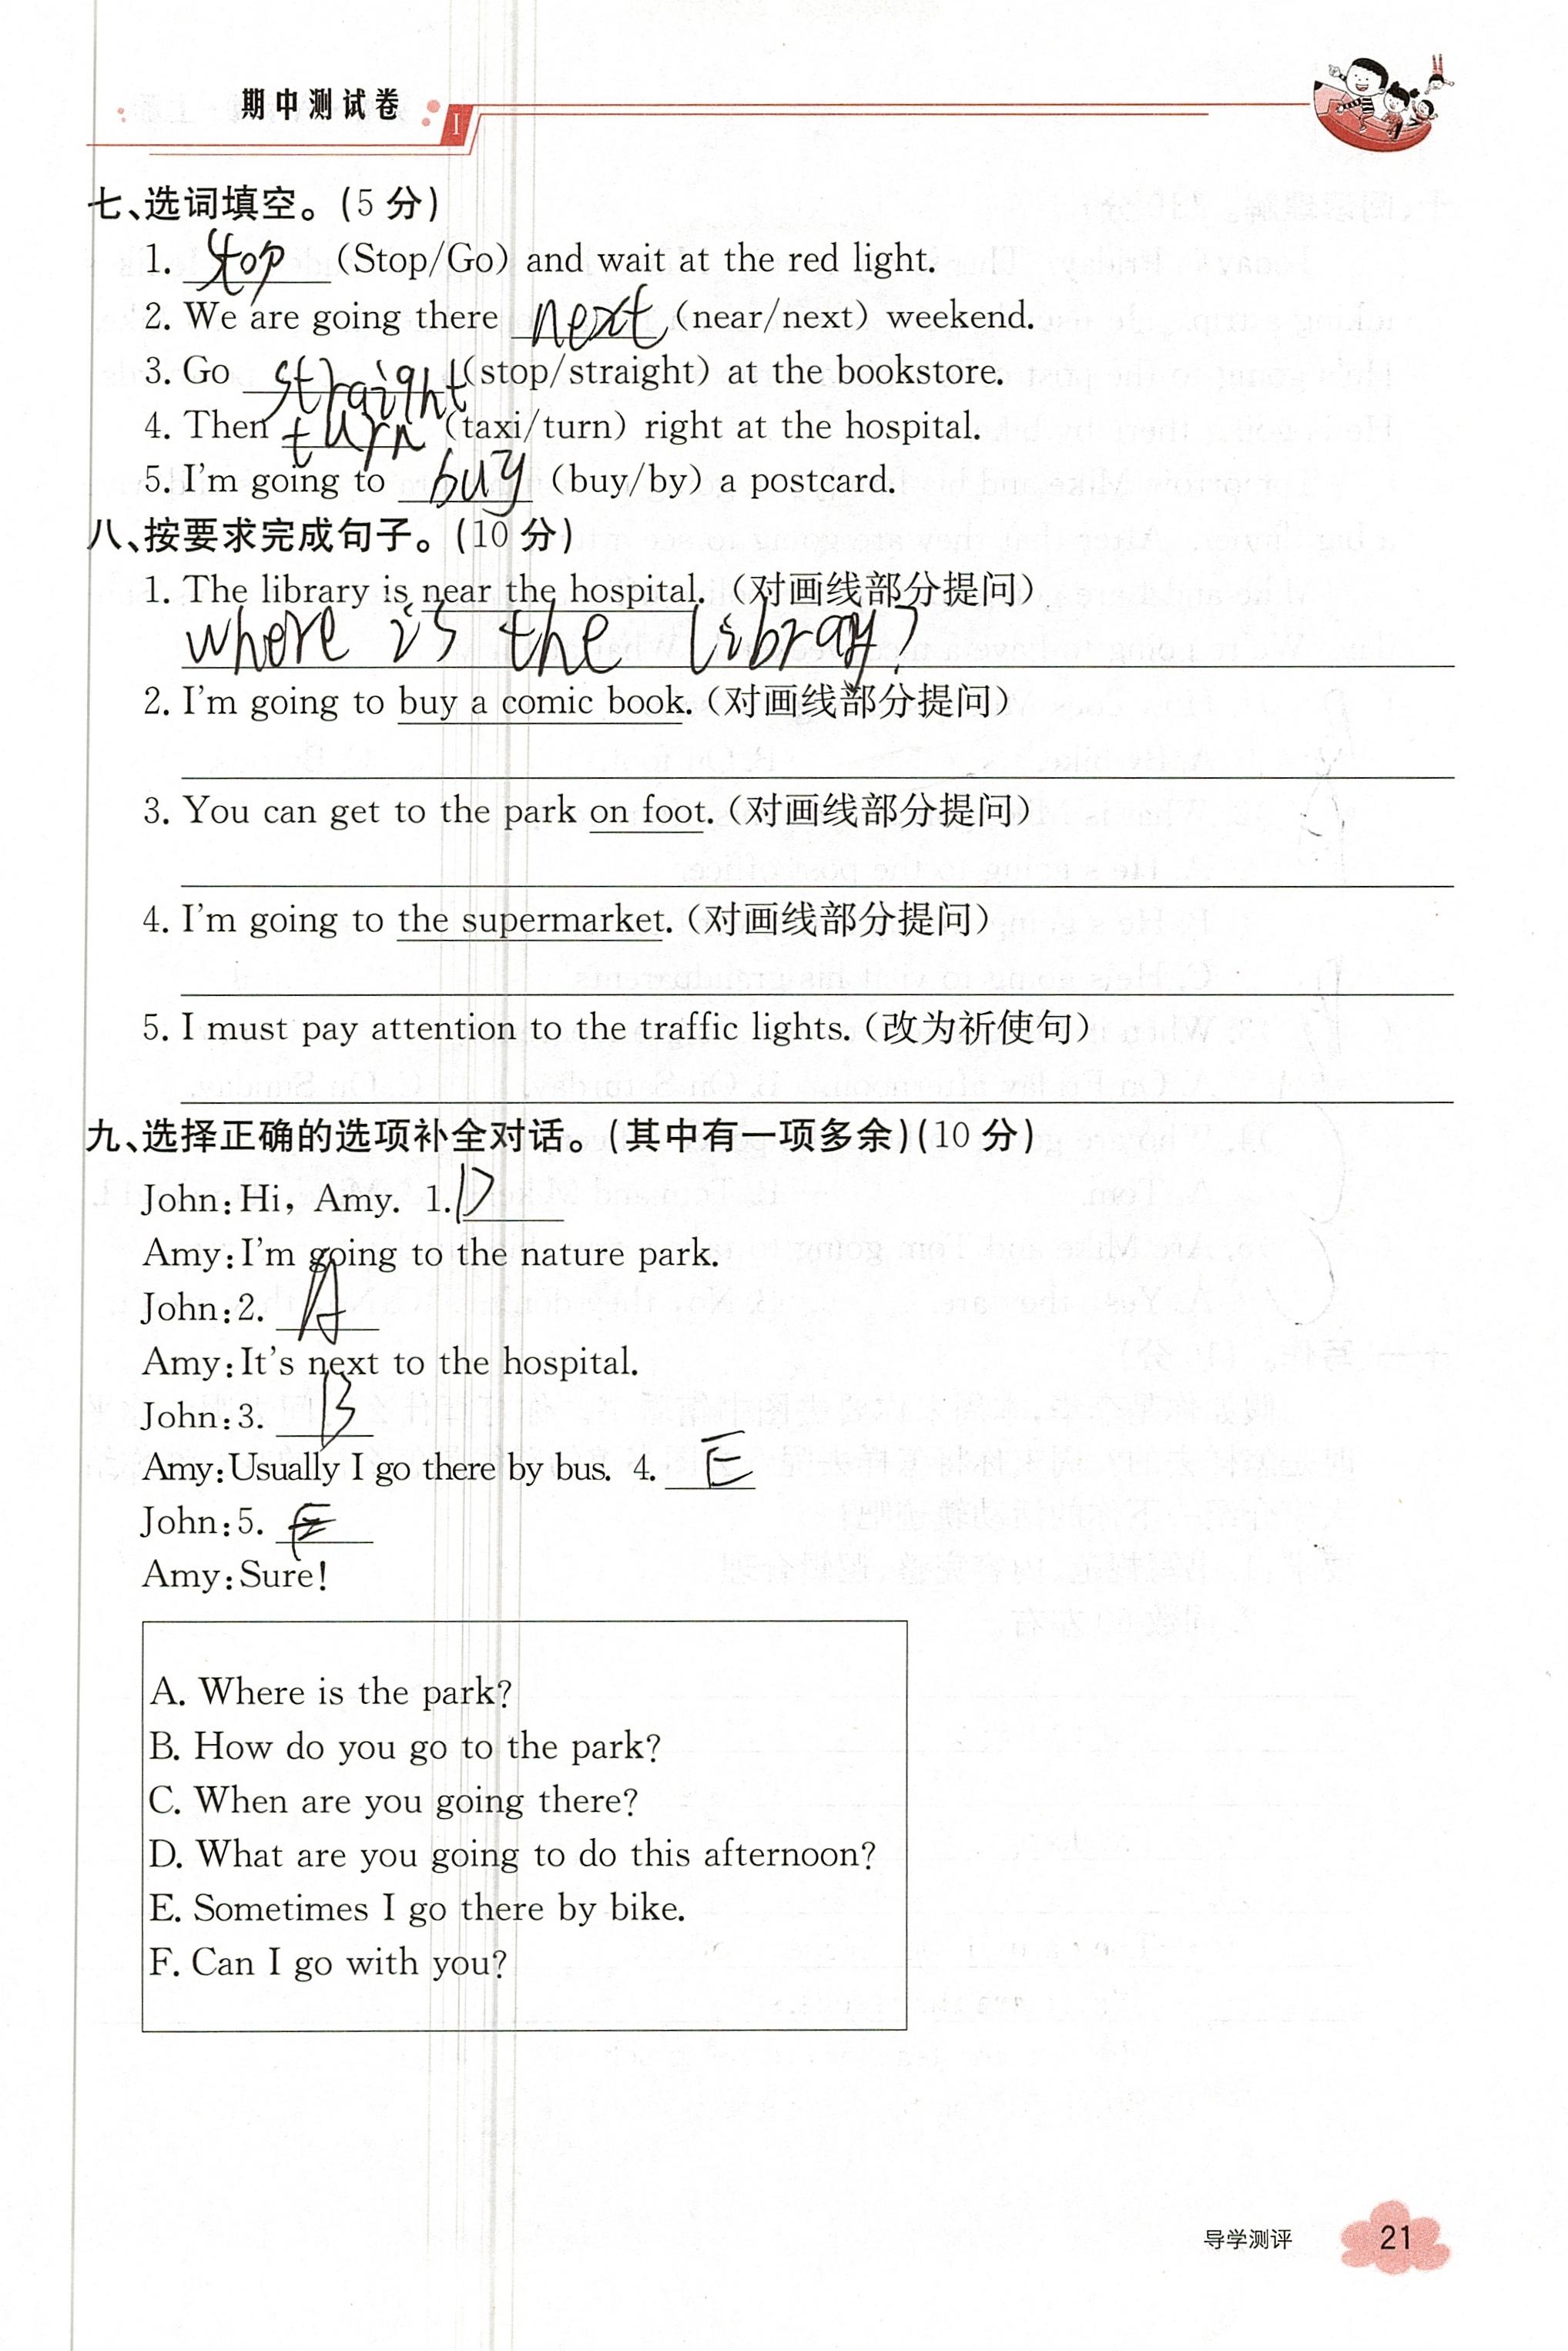 期中测试卷
I
七、选词填空。(5分)
1. stop (Stop/Go) and wait at the red light.
2. We are going there next (near/next) weekend.
3. Go straight (stop/straight) at the bookstore.
4. Then turn (taxi/turn) right at the hospital.
5. I'm going to buy (buy/by) a postcard.
八、按要求完成句子。(10分)
1. The library is near the hospital. (对画线部分提问)
where is the library?
2. I'm going to buy a comic book. (对画线部分提问)
3. You can get to the park on foot. (对画线部分提问)
4. I'm going to the supermarket. (对画线部分提问)
5. I must pay attention to the traffic lights. (改为祈使句)
九、选择正确的选项补全对话。(其中有一项多余)(10分)
John: Hi, Amy. 1. D
Amy: I'm going to the nature park.
John: 2. A
Amy: It's next to the hospital.
John: 3. B
Amy: Usually I go there by bus. 4. E
John: 5. F
Amy: Sure!
A. Where is the park?
B. How do you go to the park?
C. When are you going there?
D. What are you going to do this afternoon?
E. Sometimes I go there by bike.
F. Can I go with you?
导学测评 21